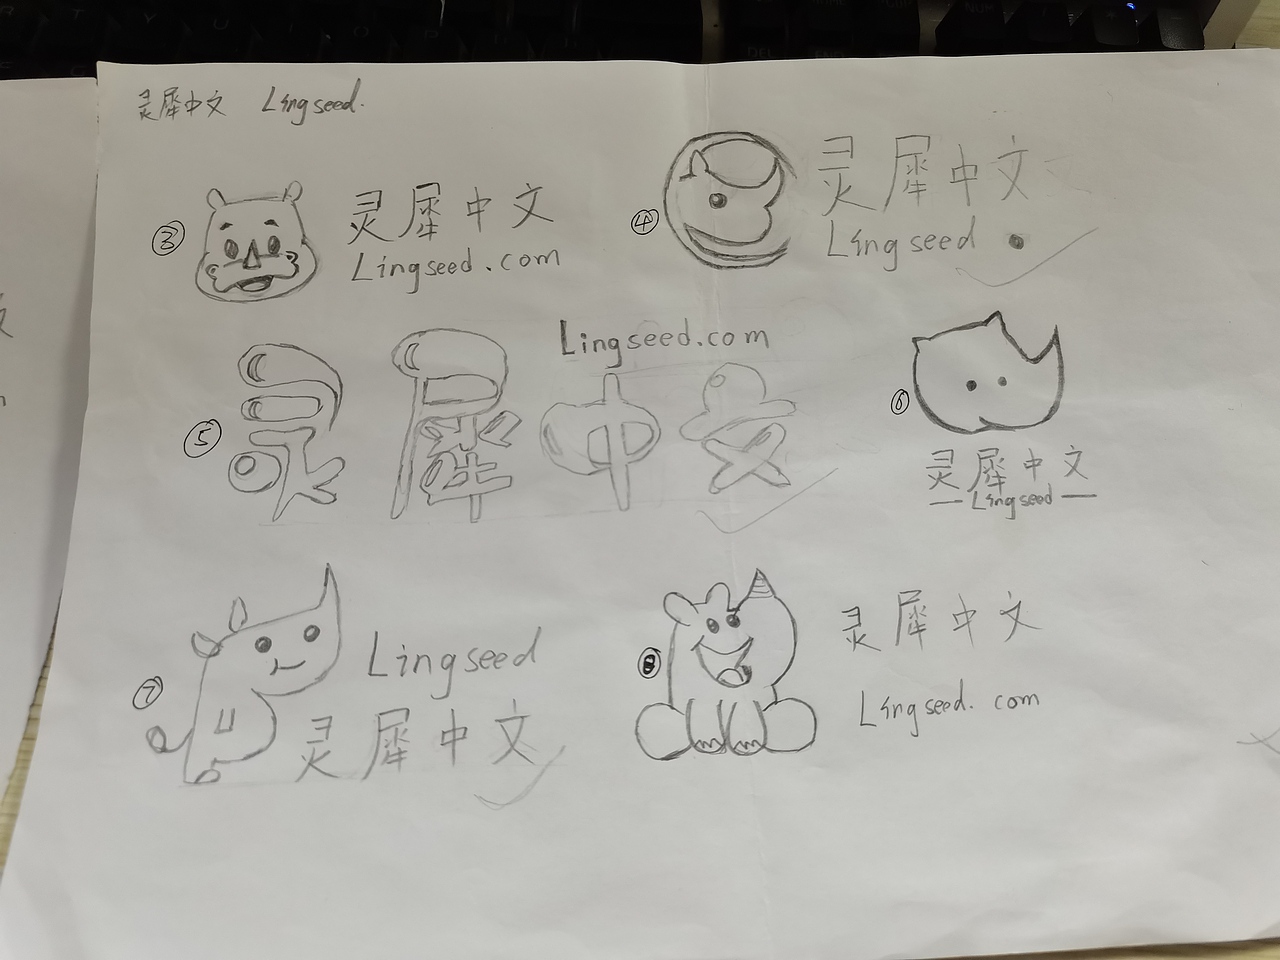 灵犀中文 Lingseed.
③ 灵犀中文
Lingseed.com
④ 灵犀中文
Lingseed
Lingseed.com
⑤ 灵犀中文
⑥
灵犀中文
— Lingseed —
⑦ Lingseed
灵犀中文
⑧ 灵犀中文
Lingseed. com